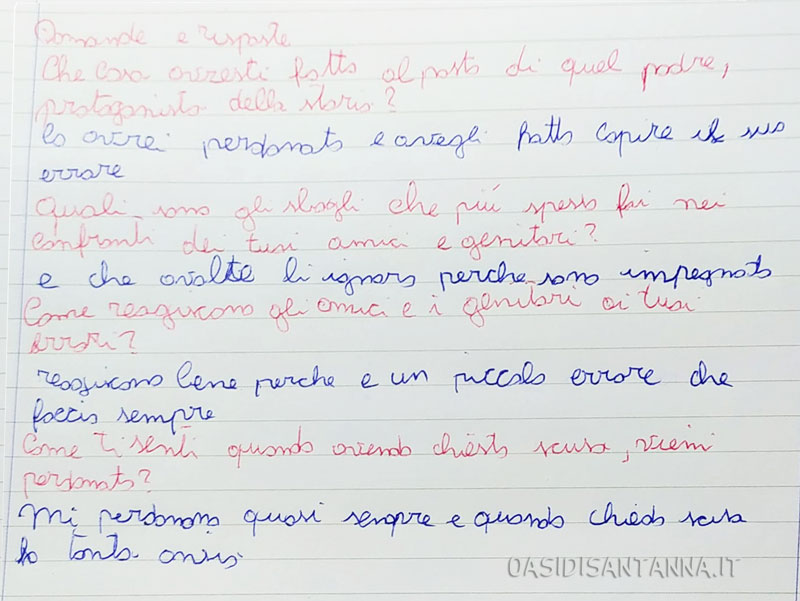 Domande e risposte
Che cosa avresti fatto al posto di quel padre,
protagonista della storia?
Io avrei perdonato e avegli fatto capire il suo
errore
Quali sono gli sbagli che più spesso fai nei
confronti dei tuoi amici e genitori?
e che avolte li ignoro perche sono impegnato
Come reagiscono gli amici e i genitori ai tuoi
errori?
reagiscono bene perche e un piccolo errore che
faccio sempre
Come ti senti quando avendo chiesto scusa, vieni
perdonato?
Mi perdonano quasi sempre e quando chiedo scusa
ho tanta ansia
OASIDISANTANNA.IT